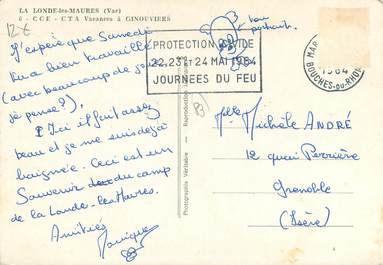 12€
LA LONDE-les-MAURES (Var)
6 - CCE - CTA Vacances à GINOUVIERS
ton
portrait.
J'espère que Samedi
tu a bien travaillé
(avec beaucoup de joie
je pense?)
Ici it fait assez
beau et je me suis déjà
baignée. Ceci est un
Souvenir du camp
de la Londe-les-Maures.
Amitiés
Monique
PROTECTION CIVILE
22,23 et 24 MAI 1964
JOURNEES DU FEU
MAR
1964
BOUCHES-DU-RHONE
Photographie Véritable - Reproduction
Melle Michèle ANDRÉ
12 quai Perrière
Grenoble
(Isère)